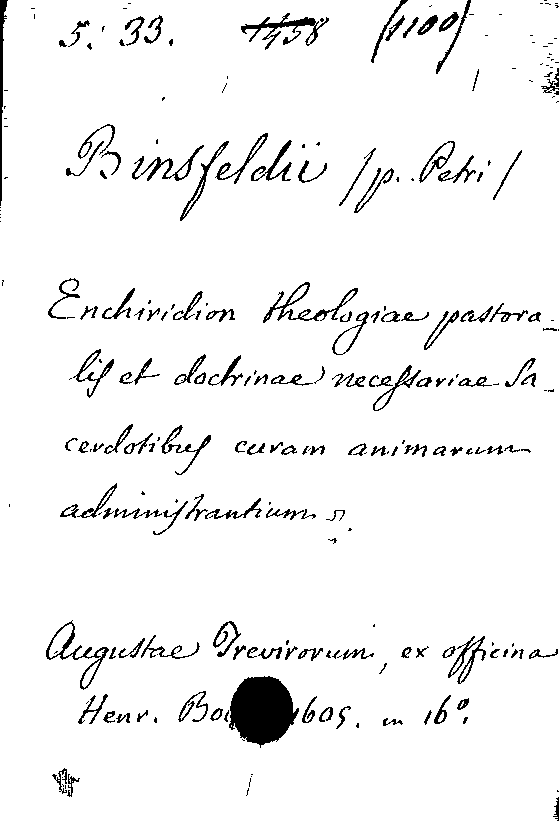 5. 33. 1458 (1100)
Binsfeldii /p. Petri/
Enchiridion theologiae pastora-
lis et doctrinae necessariae Sa-
cerdotibus curam animarum
administrantium
Augustae Trevirorum, ex officina
Henr. 1605. in 16º.